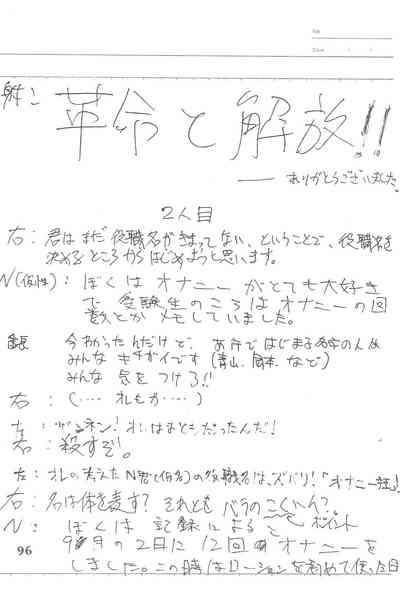 No.
Date
射:革命と解放!!
── ありがとうございました。
2人目
右:君はまだ役職名がきまってない、ということで、役職名を
決めるところからはじめようと思います。
N(仮性):ぼくはオナニーがとても大好き
で受験生のころはオナニーの回
数とかメモしていました。
今わかったんだけど、あ行ではじまる名字の人は
みんなキチガイです(青山、岡本、など)
みんな気をつけろ!!
右:(‥‥オレもか‥‥)
左:ザンネン!オレはまともだったんだ!
右:殺すぞ。
左:オレの考えたN君(仮名)の役職名は、ズバリ!「オナニー
右:名は体を表す?それともバラのこくいん?
N:ぼくは記録による とポイント
9月の2日に12回のオナニーを
しました。この時はローションを初めて使った日
96